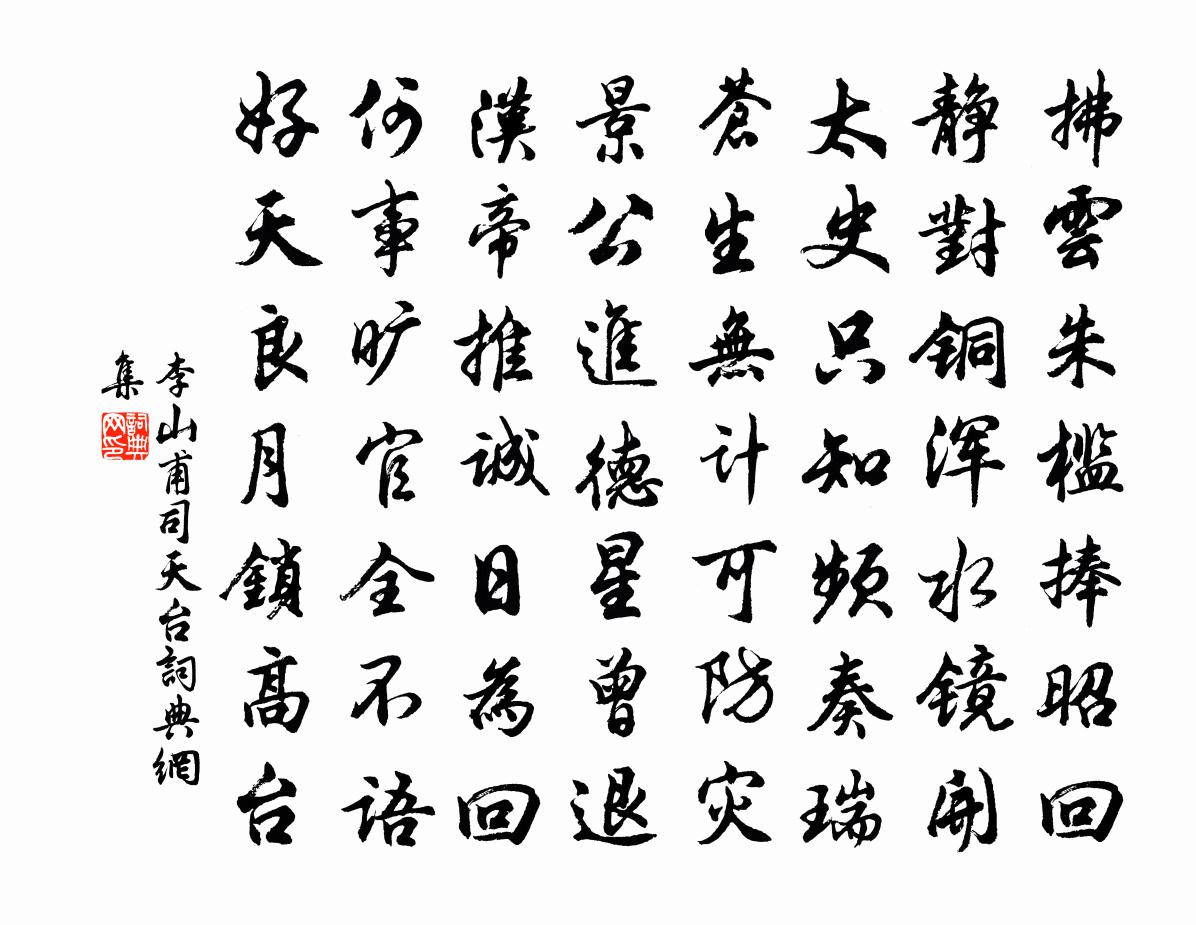 拂雲朱檻捧昭回
静對铜浑水镜開
太史只知频奏瑞
蒼生無计可防灾
景公進德星曾退
漢帝推诚日為回
何事旷官全不语
好天良月鎖高台
李山甫司天台詞典網
集
詞典
网印